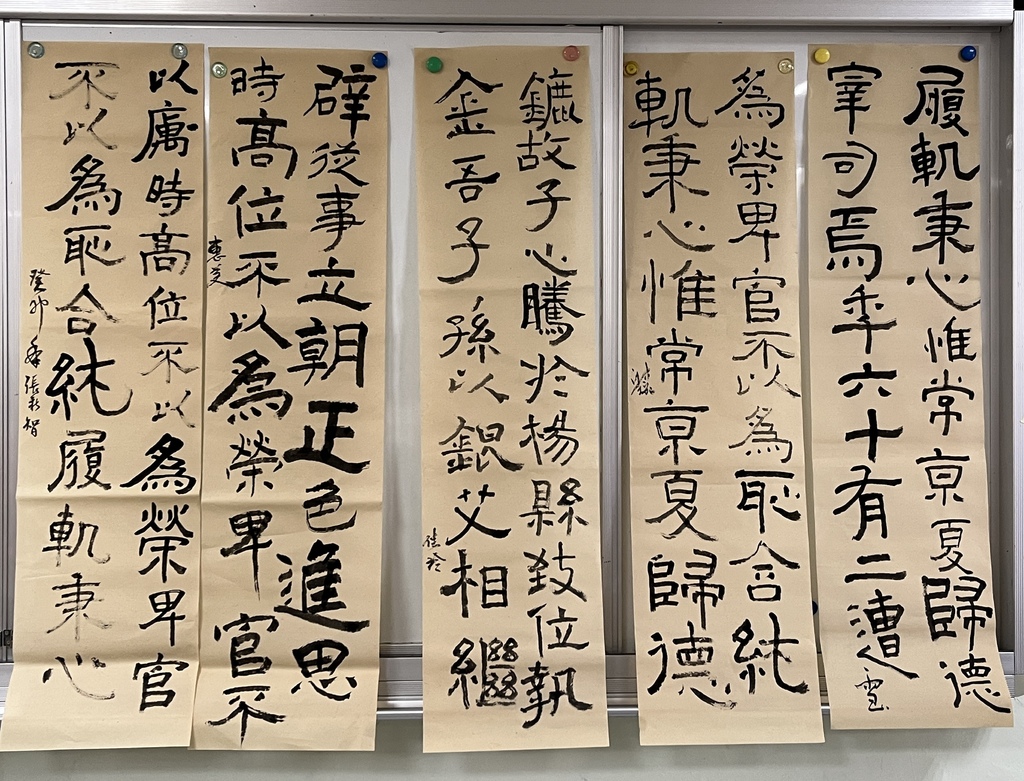 履軌秉心惟常京夏歸德
宰司焉年六十有二遭
雪
為榮卑官不以為恥含純
軌秉心惟常京夏歸德
鑣故子心騰於楊縣致位執
金吾子孫以銀艾相繼
佳玲
辟從事立朝正色進思
時高位不以為榮卑官不
惠
以厲時高位不以為榮卑官
不以為恥含純履軌秉心
癸卯年張彩智